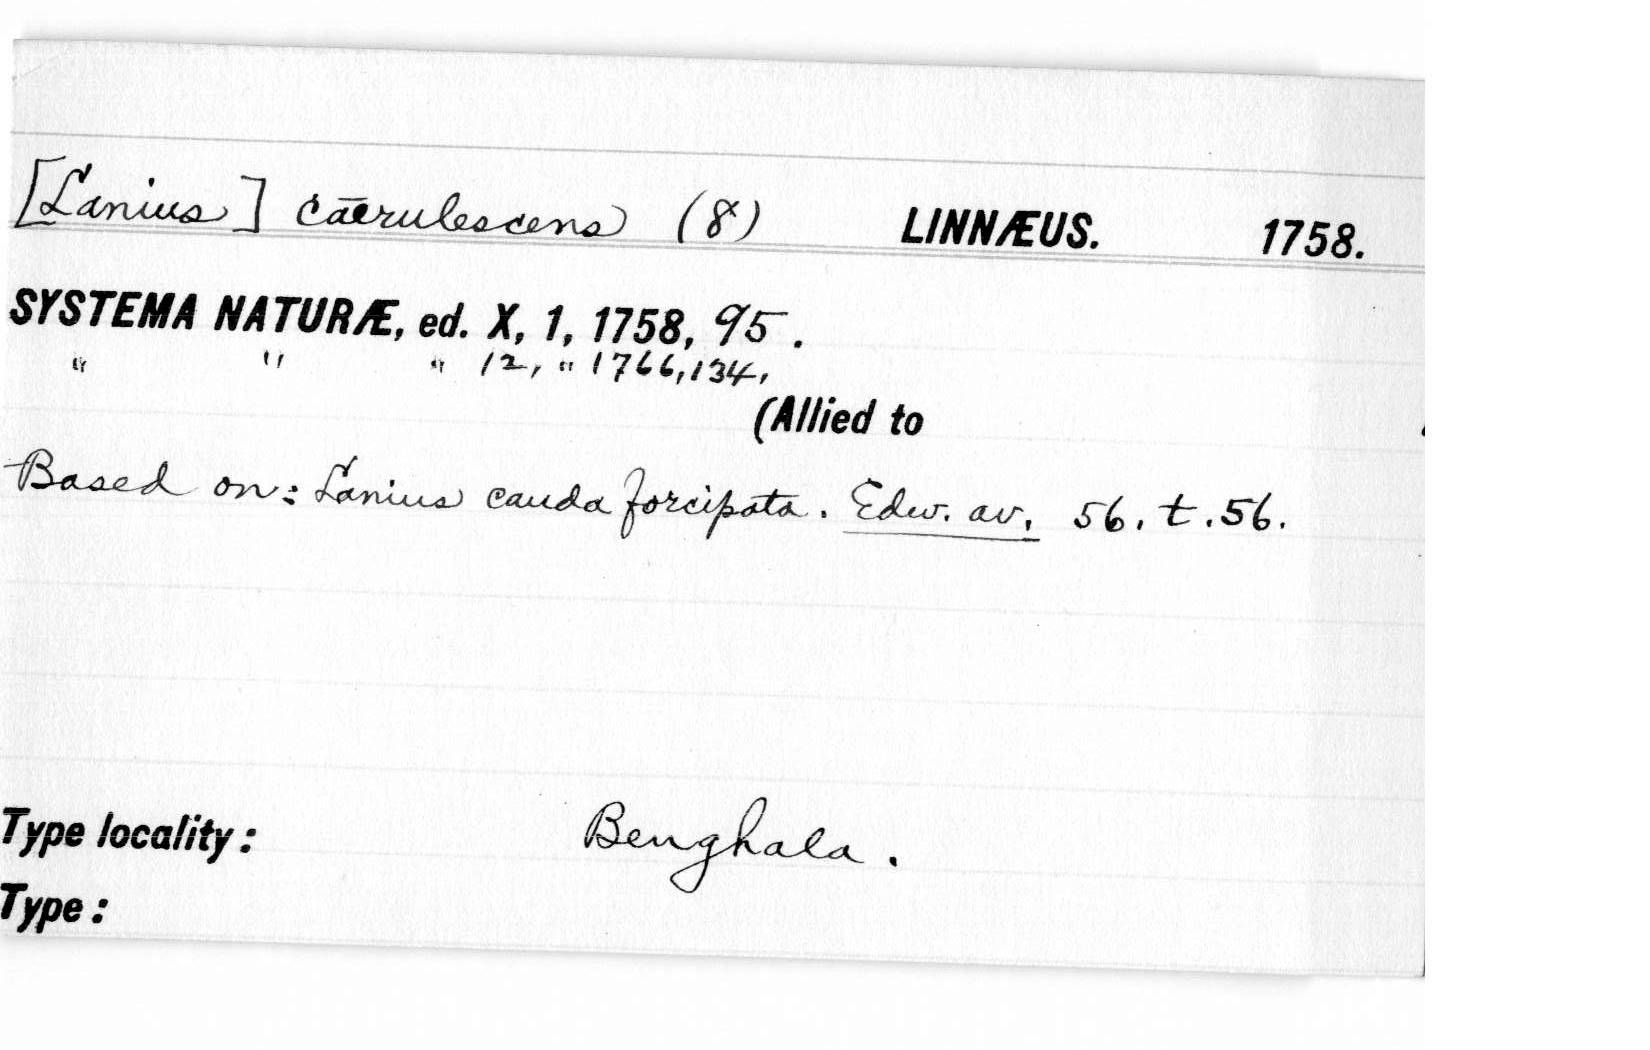 [Lanius] caerulescens (8) LINNÆUS. 1758.
SYSTEMA NATURÆ, ed. X, 1, 1758, 95.
" " " 12, " 1766, 134,
(Allied to
Based on: Lanius cauda forcipata. Edw. av. 56. t. 56.
Type locality: Benghala.
Type: